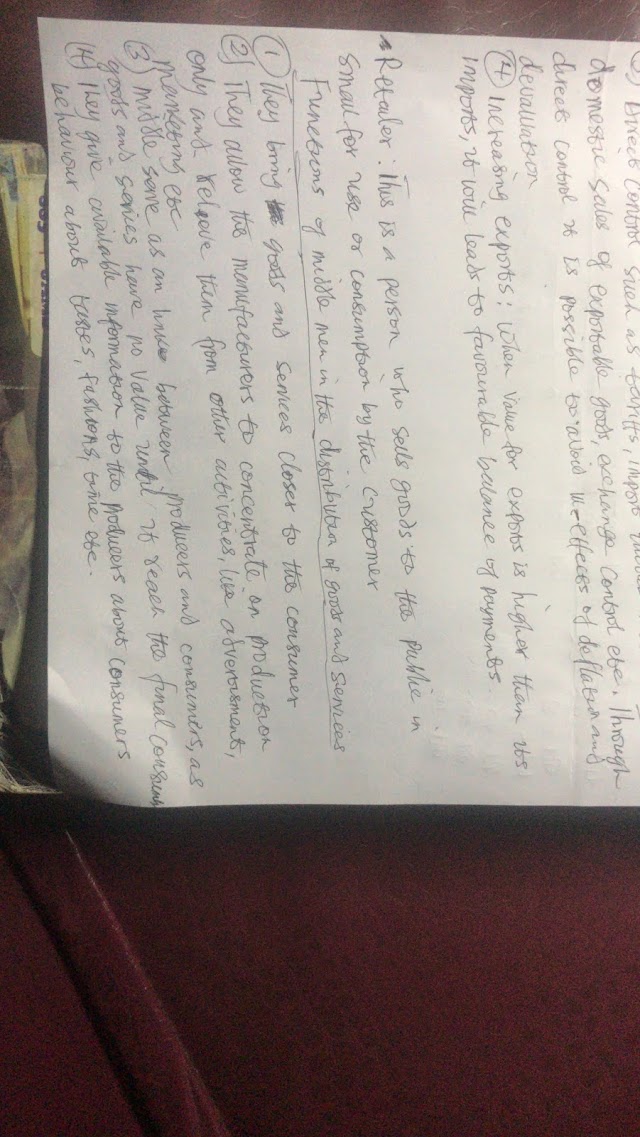 Direct control such as tariffs, import
domestic sales of exportable goods, exchange control etc. Through
direct control it is possible to avoid ill-effects of deflation and
devaluation
(4) Increasing exports: When value for exports is higher than its
imports, it will leads to favourable balance of payments.
Retailer: This is a person who sells goods to the public in
small for use or consumption by the customer
Functions of middle men in the distribution of goods and services
(1) They bring goods and services closer to the consumer
(2) They allow the manufacturers to concentrate on production
only and relieve them from other activities, like advertisment,
marketing etc
(3) middle serve as an between producers and consumers, as
goods and servies have no value until it reach the final consum
(4) They give available information to the producers about consumers
behaviour about tastes, fashions, time etc.